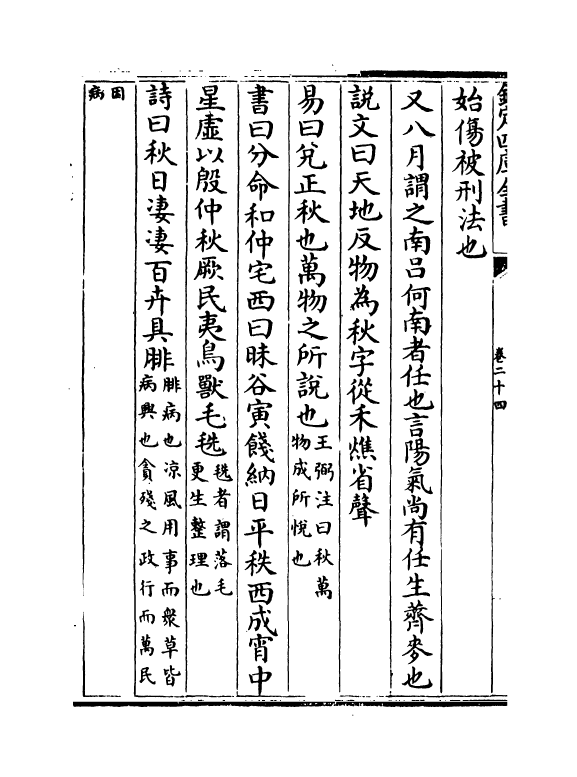 欽定四庫全書
卷二十四
始傷被刑法也
又八月謂之南吕何南者任也言陽氣尚有任生薺麥也
説文曰天地反物為秋字從禾𤒅省聲
易曰兊正秋也萬物之所説也王弼注曰秋萬
物成所悅也
書曰分命和仲宅西曰昧谷寅餞納日平秩西成宵中
星虚以殷仲秋厥民夷鳥獸毛毨毨者謂落毛
更生整理也
詩曰秋日凄凄百卉具腓腓病也凉風用事而衆草皆
病興也貪殘之政行而萬民
困
病